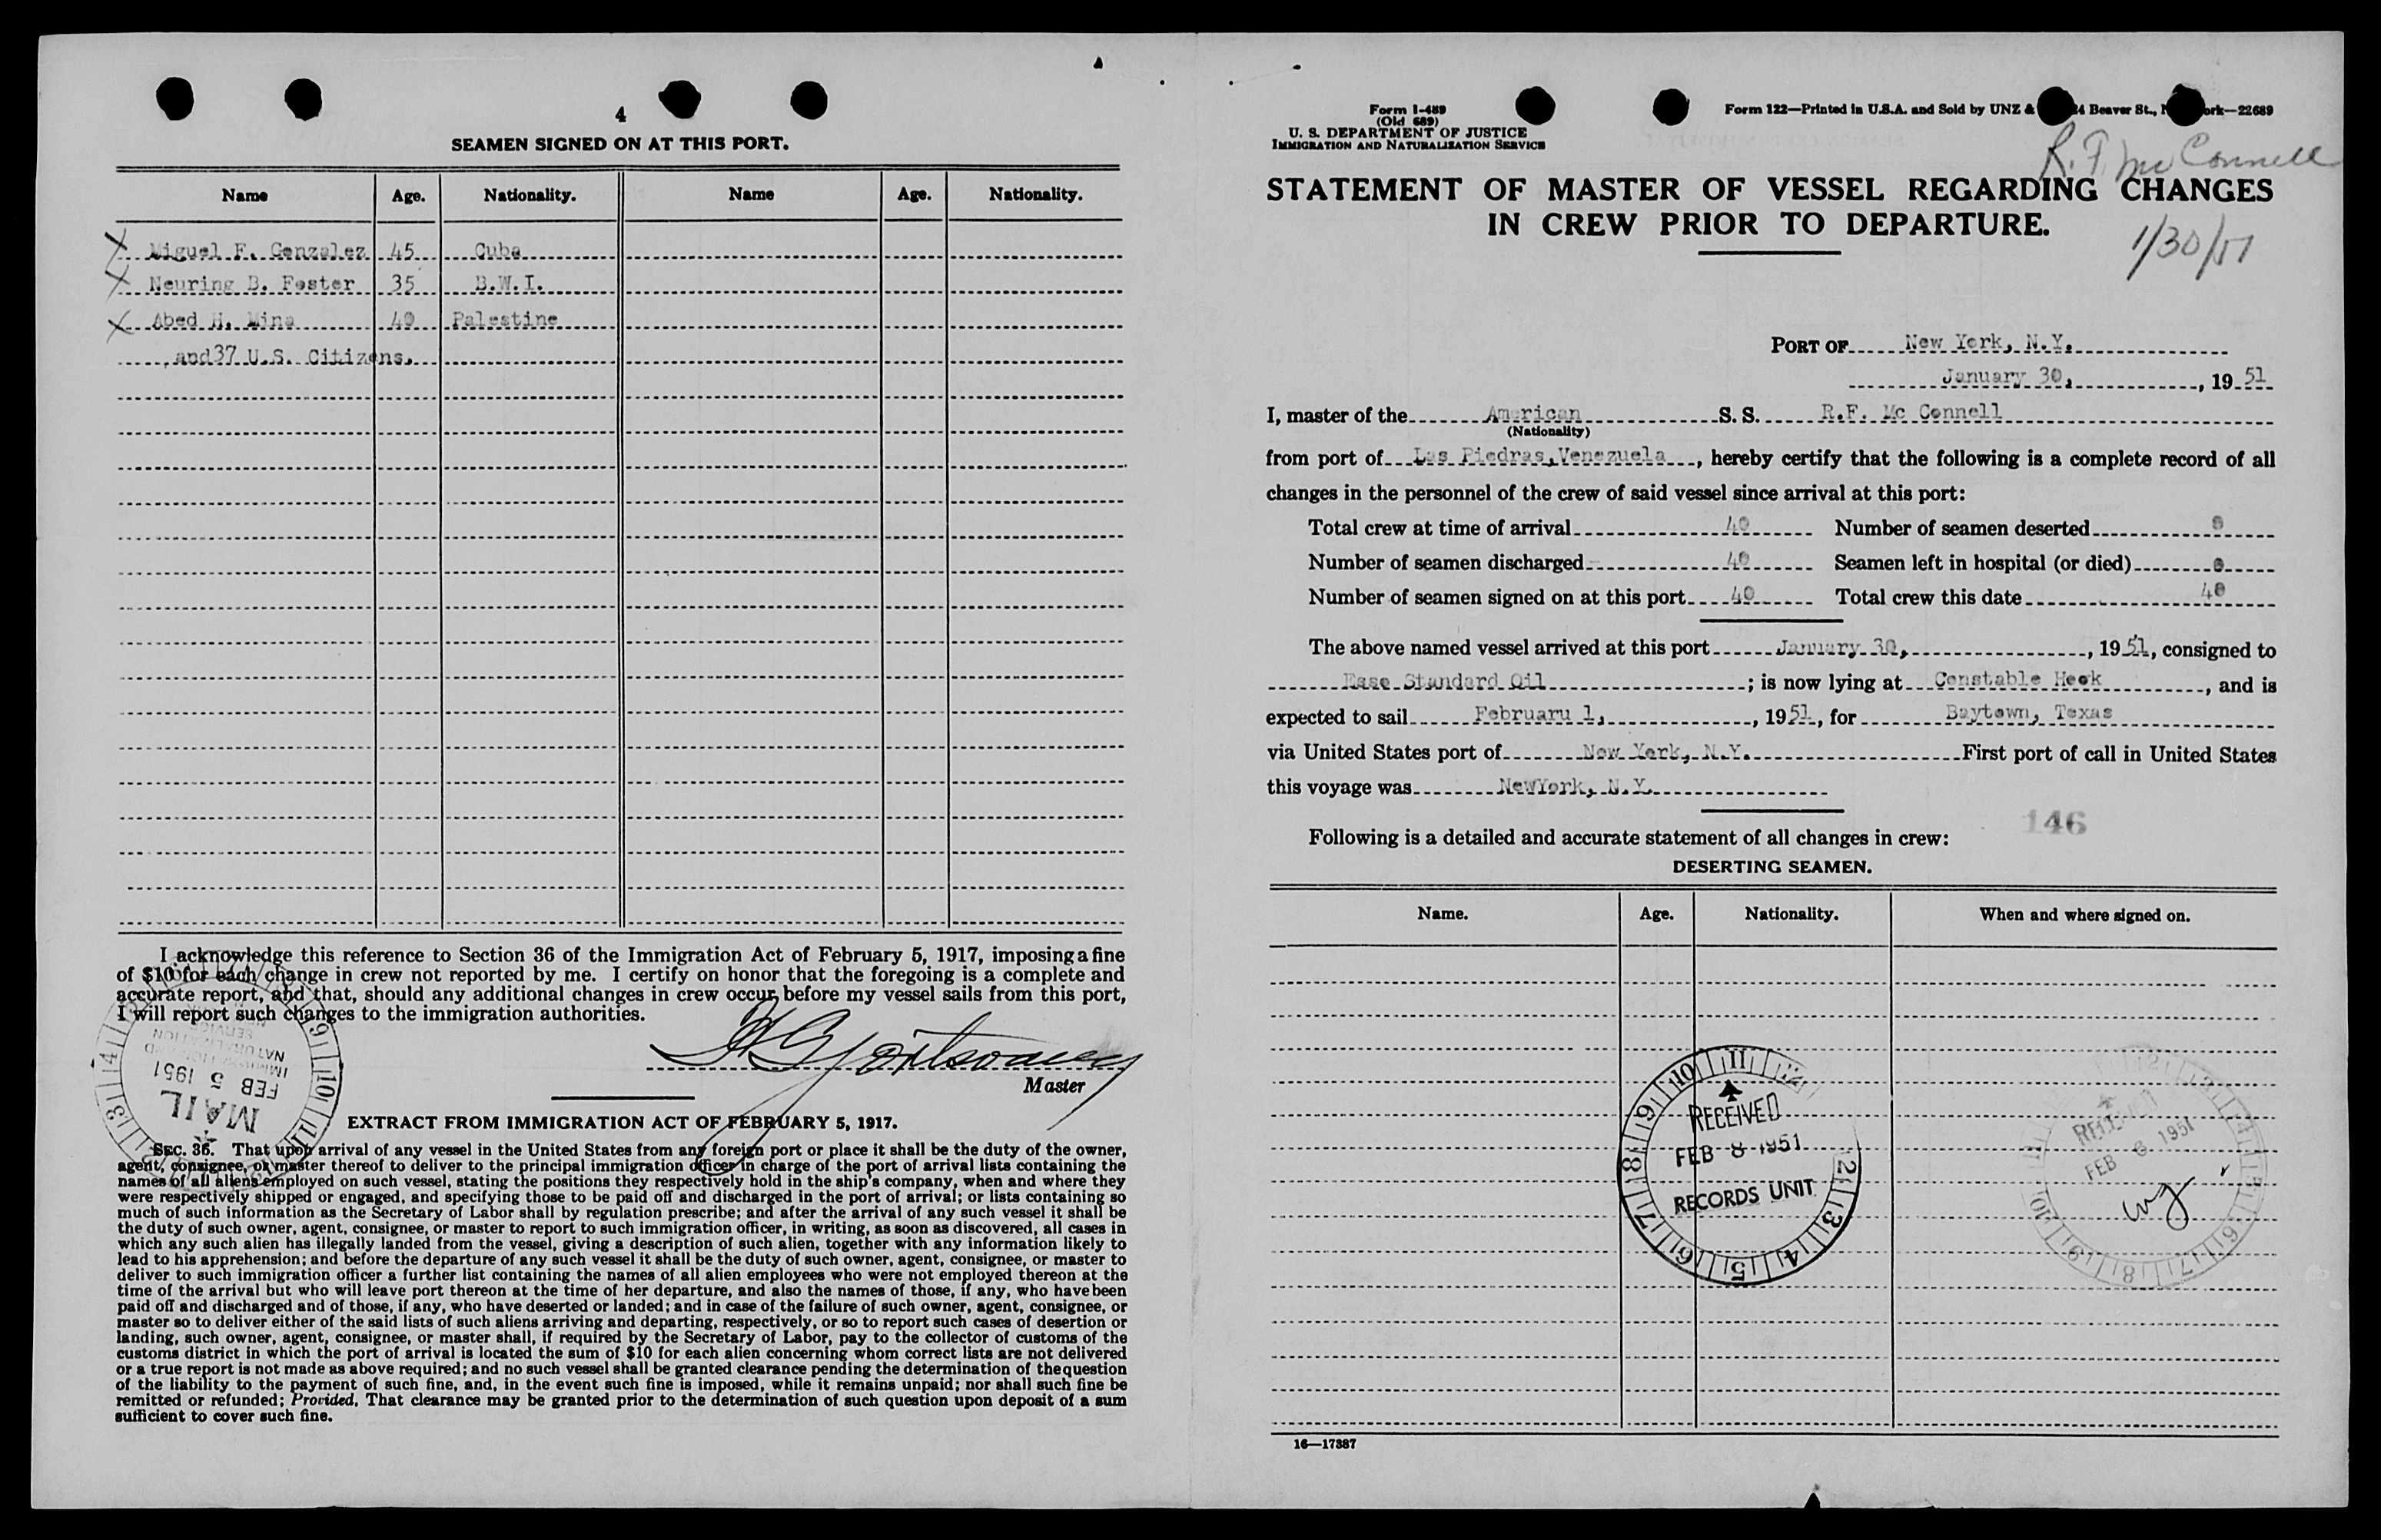 4
SEAMEN SIGNED ON AT THIS PORT.
Name Age. Nationality. Name Age. Nationality.
X Miguel F. Gonzalez 45 Cuba
X Neuring B. Foster 35 B.W.I.
X Abed H. Mina 40 Palestine
and 37 U.S. Citizens.
I acknowledge this reference to Section 36 of the Immigration Act of February 5, 1917, imposing a fine
of $10 for each change in crew not reported by me. I certify on honor that the foregoing is a complete and
accurate report, and that, should any additional changes in crew occur before my vessel sails from this port,
I will report such changes to the immigration authorities.
Master
IMMIGRATION AND
NATURALIZATION
SERVICE
FEB 5 1951
MAIL
EXTRACT FROM IMMIGRATION ACT OF FEBRUARY 5, 1917.
SEC. 36. That upon arrival of any vessel in the United States from any foreign port or place it shall be the duty of the owner,
agent, consignee, or master thereof to deliver to the principal immigration officer in charge of the port of arrival lists containing the
names of all aliens employed on such vessel, stating the positions they respectively hold in the ship's company, when and where they
were respectively shipped or engaged, and specifying those to be paid off and discharged in the port of arrival; or lists containing so
much of such information as the Secretary of Labor shall by regulation prescribe; and after the arrival of any such vessel it shall be
the duty of such owner, agent, consignee, or master to report to such immigration officer, in writing, as soon as discovered, all cases in
which any such alien has illegally landed from the vessel, giving a description of such alien, together with any information likely to
lead to his apprehension; and before the departure of any such vessel it shall be the duty of such owner, agent, consignee, or master to
deliver to such immigration officer a further list containing the names of all alien employees who were not employed thereon at the
time of the arrival but who will leave port thereon at the time of her departure, and also the names of those, if any, who have been
paid off and discharged and of those, if any, who have deserted or landed; and in case of the failure of such owner, agent, consignee, or
master so to deliver either of the said lists of such aliens arriving and departing, respectively, or so to report such cases of desertion or
landing, such owner, agent, consignee, or master shall, if required by the Secretary of Labor, pay to the collector of customs of the
customs district in which the port of arrival is located the sum of $10 for each alien concerning whom correct lists are not delivered
or a true report is not made as above required; and no such vessel shall be granted clearance pending the determination of the question
of the liability to the payment of such fine, and, in the event such fine is imposed, while it remains unpaid; nor shall such fine be
remitted or refunded; Provided, That clearance may be granted prior to the determination of such question upon deposit of a sum
sufficient to cover such fine.
Form I-489
(Old 689)
U. S. DEPARTMENT OF JUSTICE
IMMIGRATION AND NATURALIZATION SERVICE
Form 122—Printed in U.S.A. and Sold by UNZ & 24 Beaver St., N ork—22689
R. F. Mc Connell
STATEMENT OF MASTER OF VESSEL REGARDING CHANGES
IN CREW PRIOR TO DEPARTURE.
1/30/51
PORT OF New York, N.Y.
January 30, , 19 51
I, master of the American S. S. R.F. Mc Connell
(Nationality)
from port of Las Piedras, Venezuela , hereby certify that the following is a complete record of all
changes in the personnel of the crew of said vessel since arrival at this port:
Total crew at time of arrival 40 Number of seamen deserted 0
Number of seamen discharged 40 Seamen left in hospital (or died) 0
Number of seamen signed on at this port 40 Total crew this date 40
The above named vessel arrived at this port January 30, , 19 51, consigned to
Esso Standard Oil ; is now lying at Constable Hook , and is
expected to sail Februaru 1, , 19 51, for Baytown, Texas
via United States port of New York, N.Y. First port of call in United States
this voyage was NewYork, N.Y.
146
Following is a detailed and accurate statement of all changes in crew:
DESERTING SEAMEN.
Name. Age. Nationality. When and where signed on.
RECEIVED
FEB 8 1951
RECORDS UNIT
RECEIVED
FEB 8 1951
16—17387